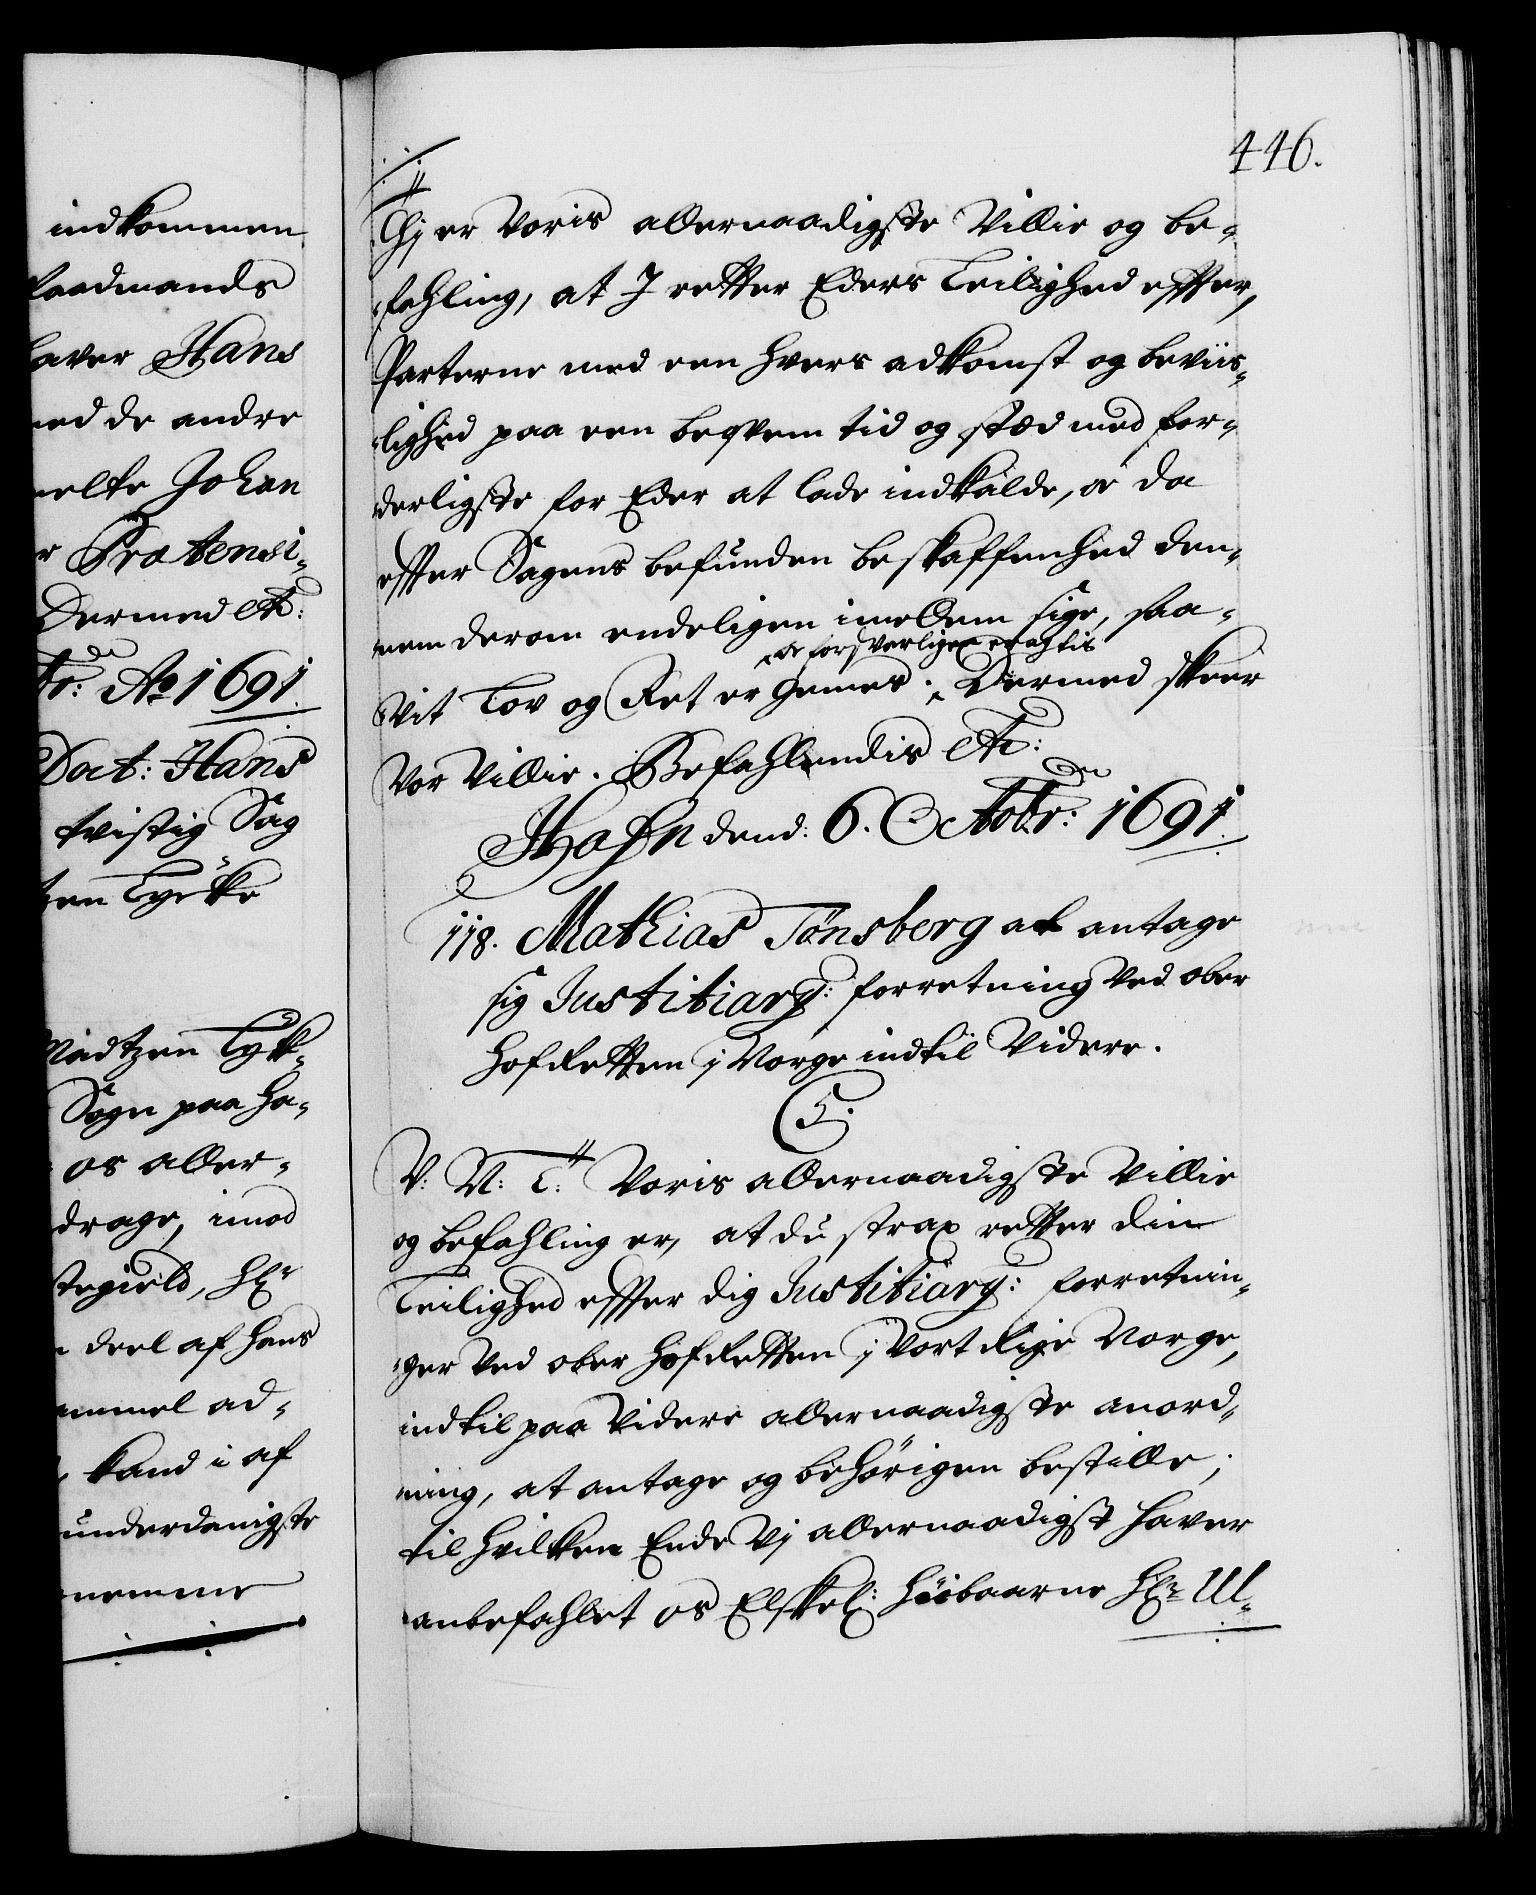 indkommen
aadmands
aver Hans
ed de andre
elte Johan
r Prætensi-
Dermed etc:
br: Ao 1691.
Doct: Hans
tvistig Sag
zen Tycke
Madtzen Tyk-
Sogn paa Ha-
os aller-
drage, imod
tegield, Hr
deel af hans
ammel ad-
kand i af
underdanigste
nemme
446.
Thj er Voris allernaadigste Villie og be-
fahling, at I retter Eders Leilighed effter,
Parterne med een hvers adkomst og beviis-
lighed paa een beqvem tid og stæd med for-
derligste for Eder at lade indkalde, oc da
effter Sagens befunden beskaffenhed den-
nem derom endeligen imellem sige, saa-
oc forsvarligen eragtis
vit Lov og Ret er gemes. Dermed skeer
Vor Villie. Befahlendis etc:
Hafn dend: 6. Octobr: 1691.
118. Mathias Tønsberg at antage
sig Justitiarij: forretning ved ober
hofRetten j Norge indtil videre.
C. 5.
V: N: T: Voris allernaadigste Villie
og befahling er, at du strax retter din
Leilighed effter dig Justitiarij: forretnin-
ger ved ober hofRetten j Vort Rige Norge,
indtil paa videre allernaadigste anord-
ning, at antage og behørigen bestille;
til hvilken Ende Vj allernaadigst haver
anbefahlet os Elskel: Høibaarne Hr Ul-